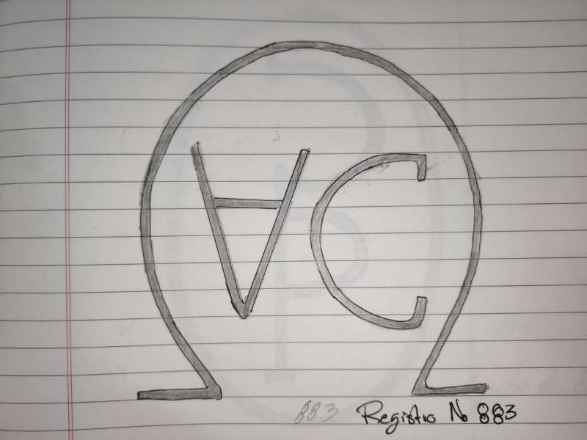 ∀C
883 Registro No 883